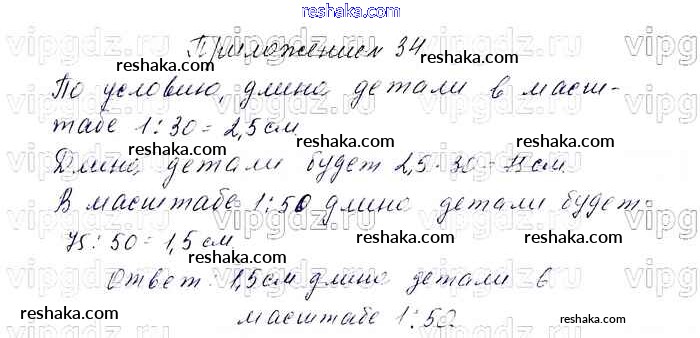 Приложение 34
По условию, длина детали в масш-
табе 1:30 = 2,5 см
Длина детали будет 2,5 · 30 = 75 см
В масштабе 1:50 длина детали будет:
75 : 50 = 1,5 см
Ответ: 1,5 см длина детали в
масштабе 1:50.
reshaka.com
vipgdz.ru